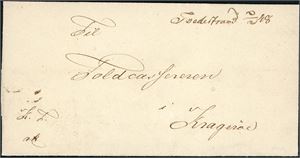 Tvedestrand 2/2 48
Til
Toldcassereren
i
Kragerøe